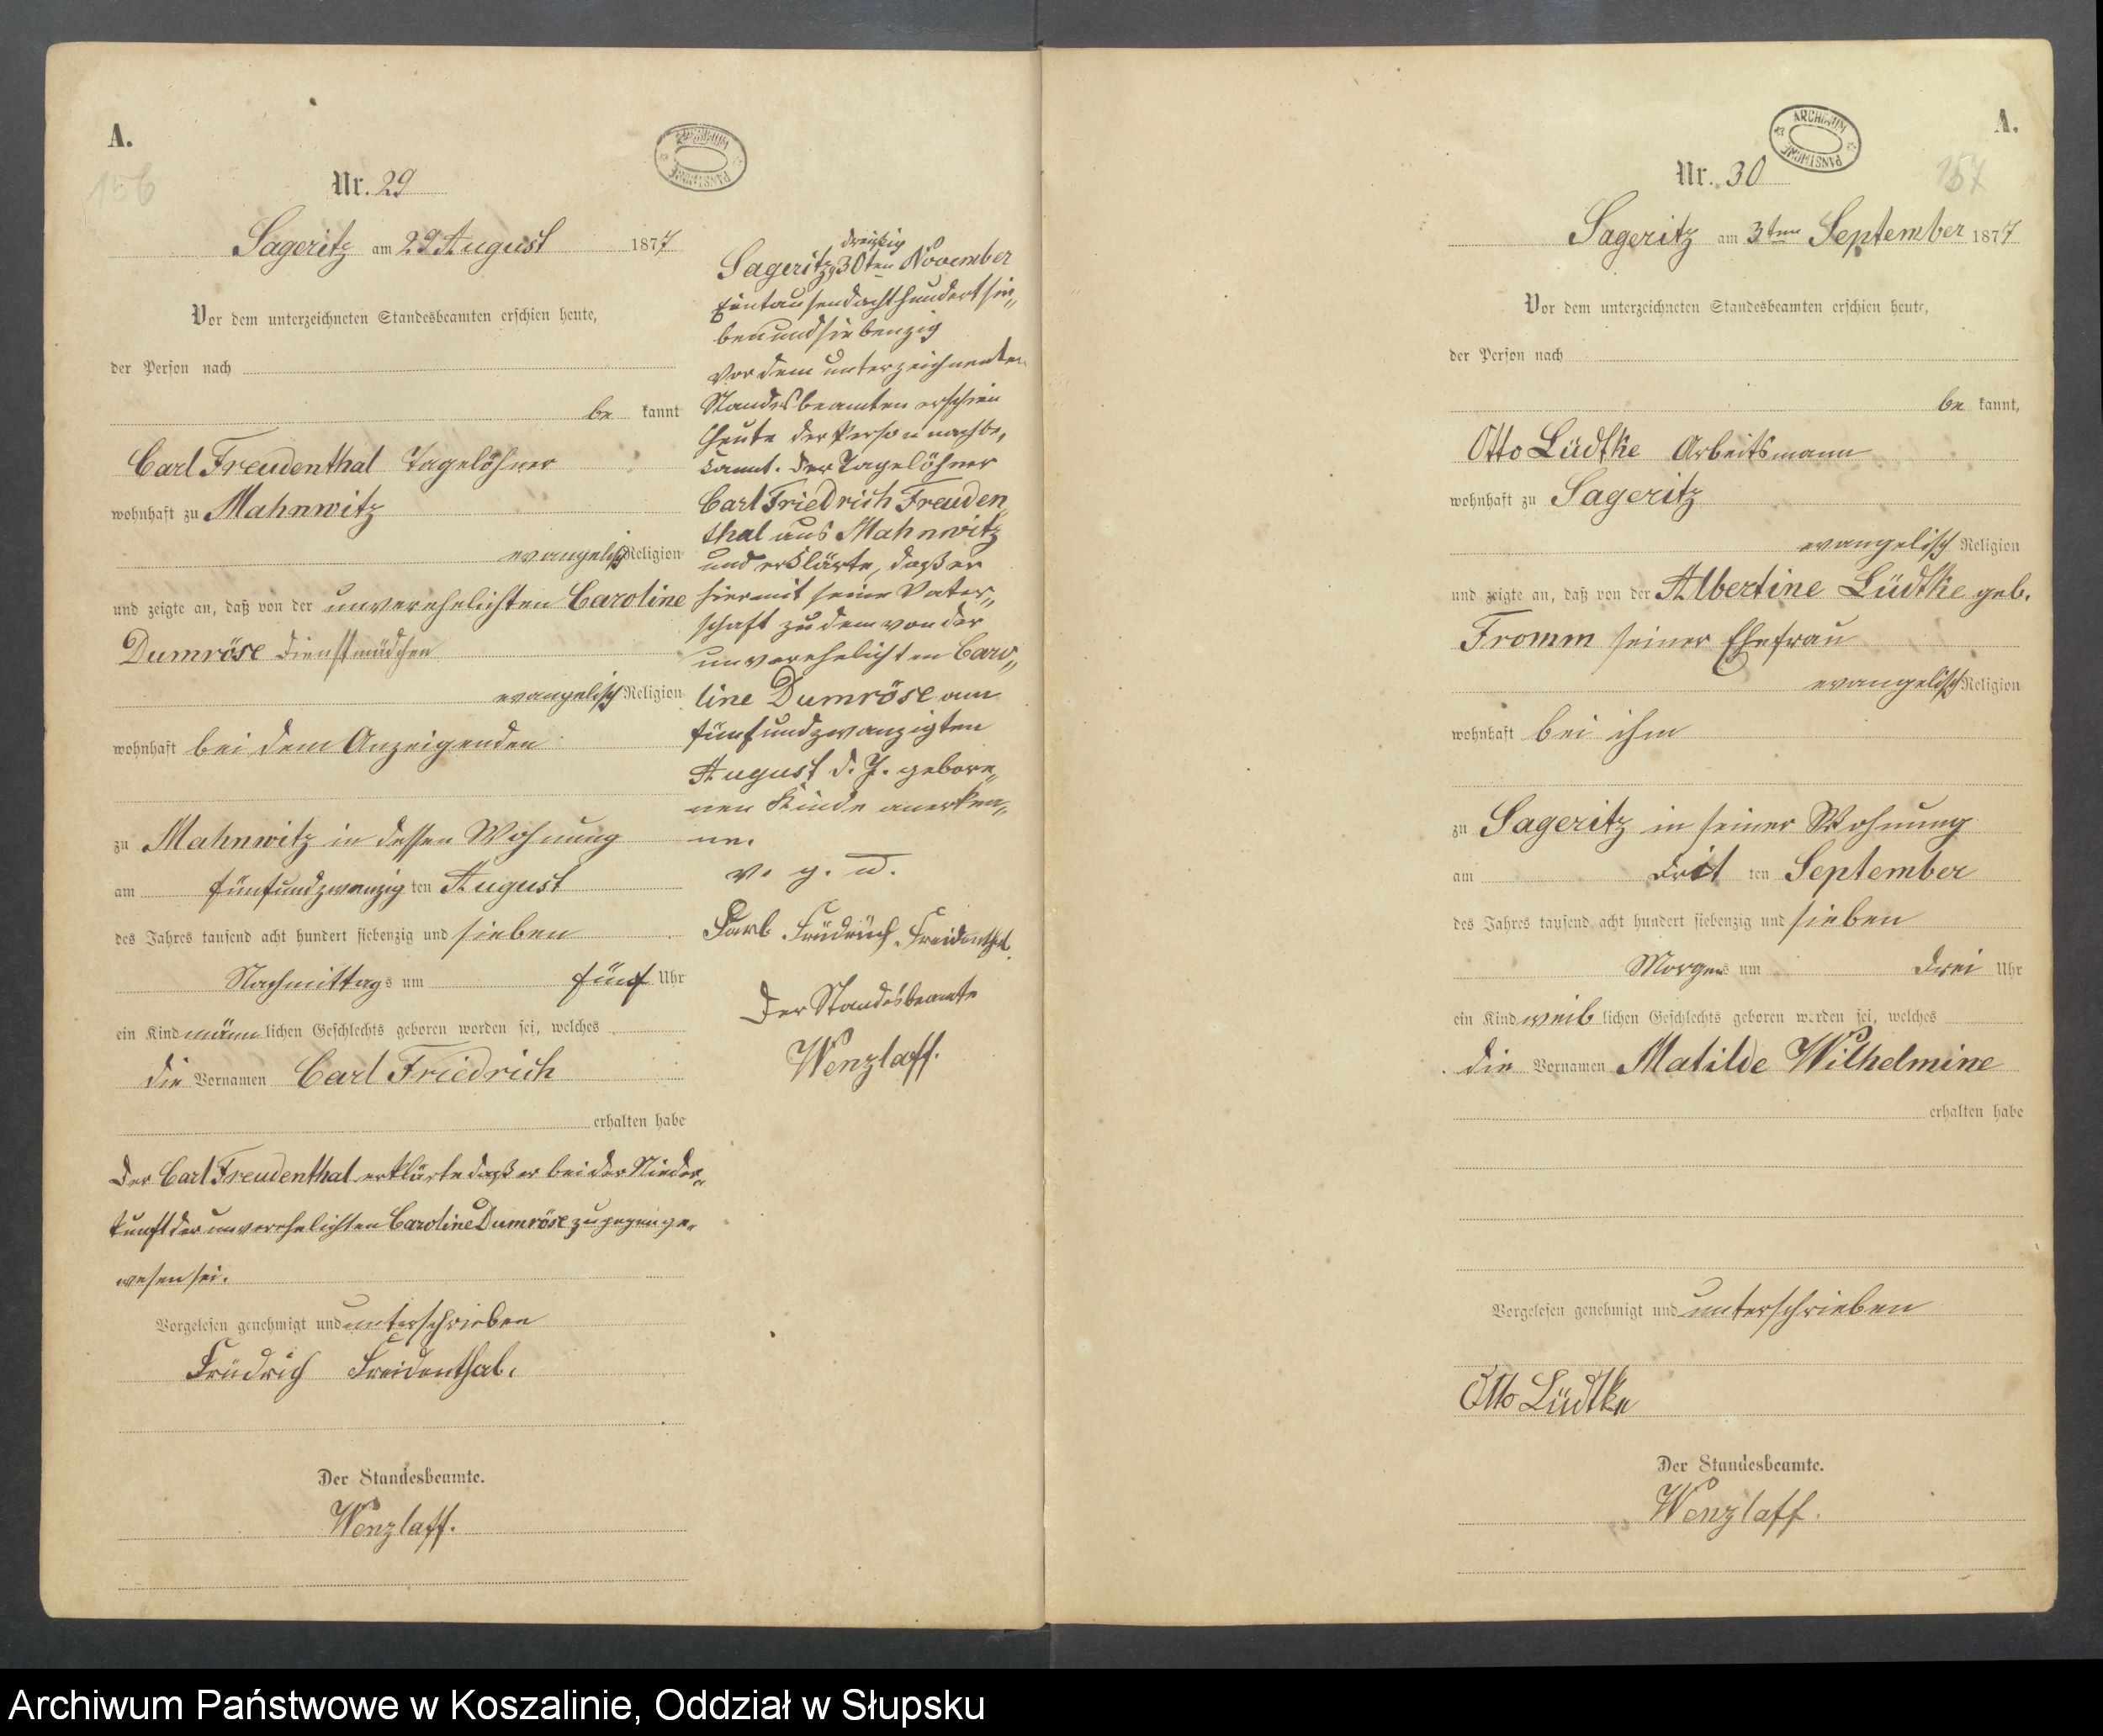 A.
156
ARCHIWUM PAŃSTWOWE
Nr. 29
Sageritz am 29 August 1877
Vor dem unterzeichneten Standesbeamten erschien heute,
der Person nach
be kannt
Carl Freudenthal Tagelöhner
wohnhaft zu Mahnwitz
evangelisch Religion
und zeigte an, daß von der unverehelichten Caroline
Dumröse Dienstmädchen
evangelisch Religion
wohnhaft bei dem Anzeigenden
zu Mahnwitz in dessen Wohnung
am fünfundzwanzig ten August
des Jahres tausend acht hundert siebenzig und sieben
Nachmittags um fünf Uhr
ein Kind männ lichen Geschlechts geboren worden sei, welches
die Vornamen Carl Friedrich
erhalten habe
Der Carl Freudenthal erklärte daß er bei der Nieder„
kunft der unverehelichten Caroline Dumröse zugegen ge„
wesen sei.
Vorgelesen genehmigt und unterschrieben
Früdrich Freidenthal.
Der Standesbeamte.
Wenzlaff.
dreißig
Sageritz, 30ten November
Eintausendachthundertsie„
benundsiebenzig
Vor dem unterzeichneten
Standesbeamten erschien
heute der Person nach be„
kannt. der Tagelöhner
Carl Friedrich Freuden„
thal aus Mahnwitz
und erklärte, daß er
hiermit seine Vater„
schaft zu dem von der
unverehelichten Caro„
line Dumröse am
fünfundzwanzigten
August d. J. gebore„
nen Kinde anerken„
ne.
v. g. u.
Carl Früdrich Freidenthal.
Der Standesbeamte
Wenzlaff.
A.
157
ARCHIWUM PAŃSTWOWE
Nr. 30
Sageritz am 3ten September 1877
Vor dem unterzeichneten Standesbeamten erschien heute,
der Person nach
be kannt,
Otto Lüdtke Arbeitsmann
wohnhaft zu Sageritz
evangelisch Religion
und zeigte an, daß von der Albertine Lüdtke geb.
Fromm seiner Ehefrau
evangelisch Religion
wohnhaft bei ihm
zu Sageritz in seiner Wohnung
am drit ten September
des Jahres tausend acht hundert siebenzig und sieben
Morgens um drei Uhr
ein Kind weib lichen Geschlechts geboren worden sei, welches
die Vornamen Matilde Wilhelmine
erhalten habe
Vorgelesen genehmigt und unterschrieben
Otto Lüdtke
Der Standesbeamte.
Wenzlaff.
Archiwum Państwowe w Koszalinie, Oddział w Słupsku